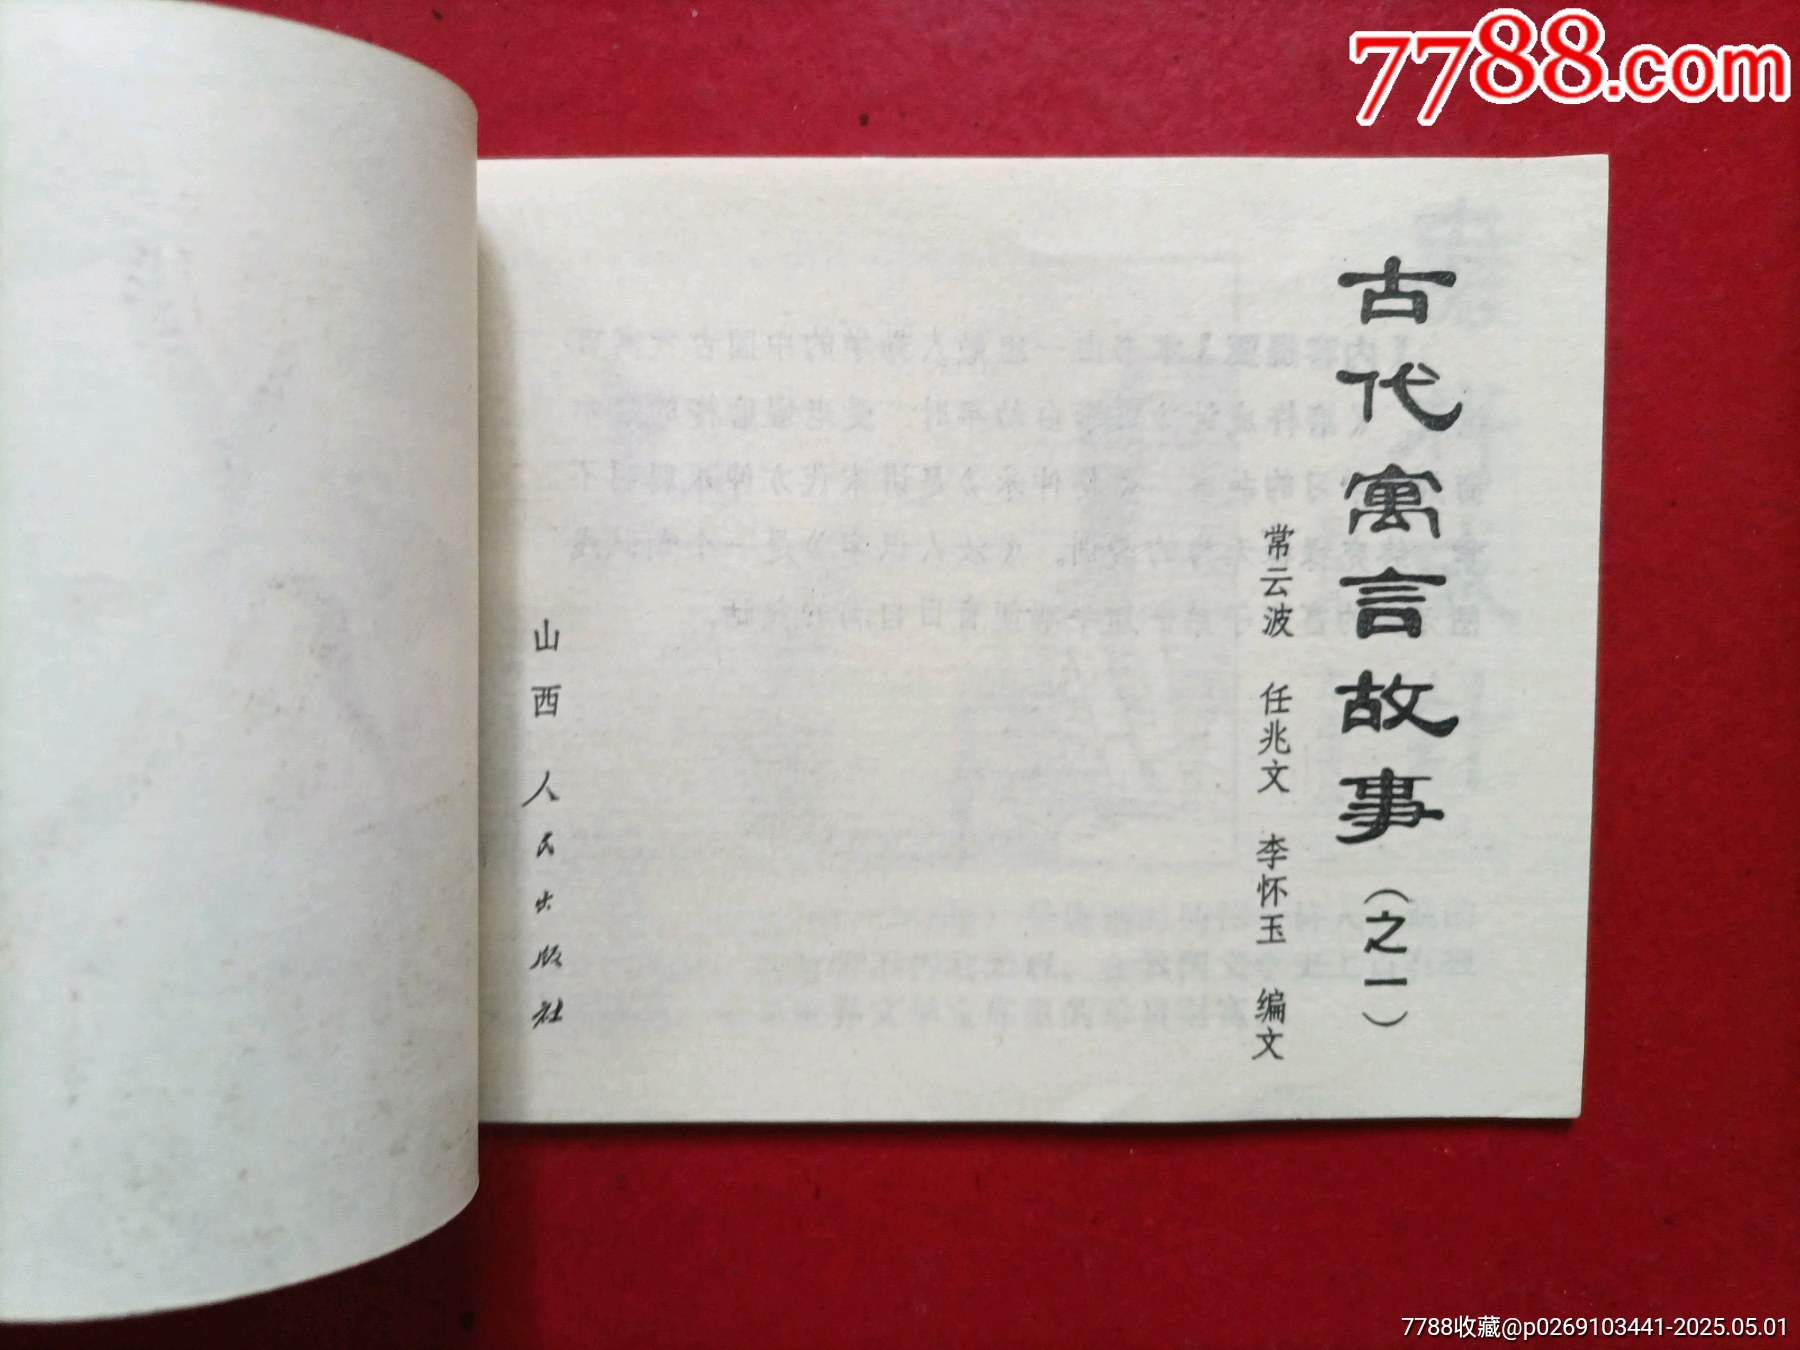 7788.com
古代寓言故事（之一）
常云波 任兆文 李怀玉 编文
山西人民出版社
7788收藏@p0269103441-2025.05.01